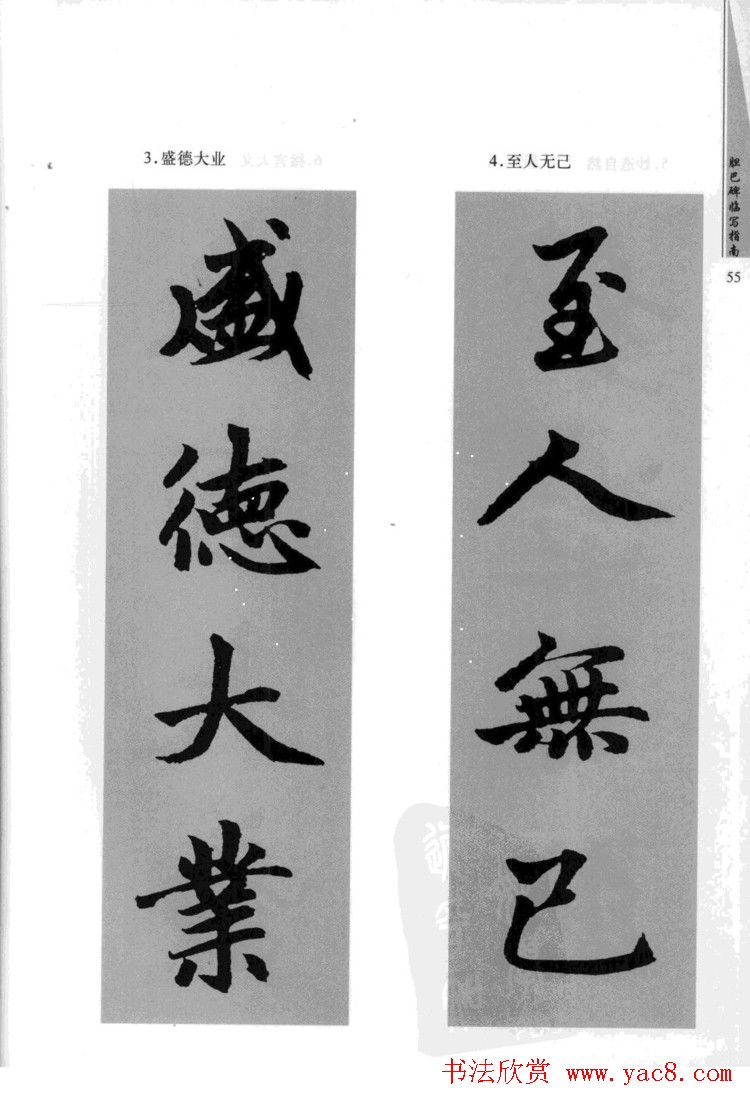 3.盛德大业
盛德大業
4.至人无己
至人無己
胆巴碑临写指南
55
书法欣赏 www.yac8.com